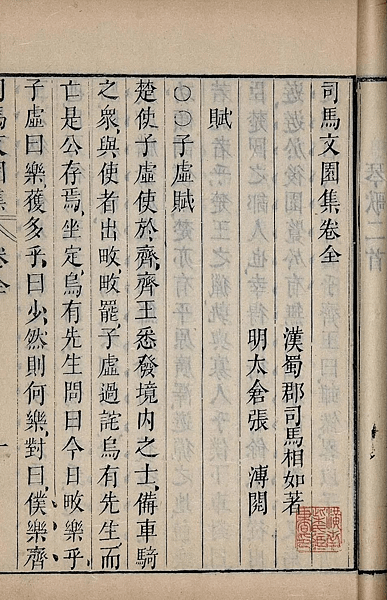 司馬文園集卷全
漢蜀郡司馬相如著
明太倉張溥閱
賦
○○子虛賦
楚使子虛使於齊齊王悉發境内之士備車騎
之衆與使者出畋畋罷子虛過詫烏有先生而
亡是公存焉坐定烏有先生問曰今日畋樂乎
子虛曰樂獲多乎曰少然則何樂對曰僕樂齊
司馬文園集 卷全 一